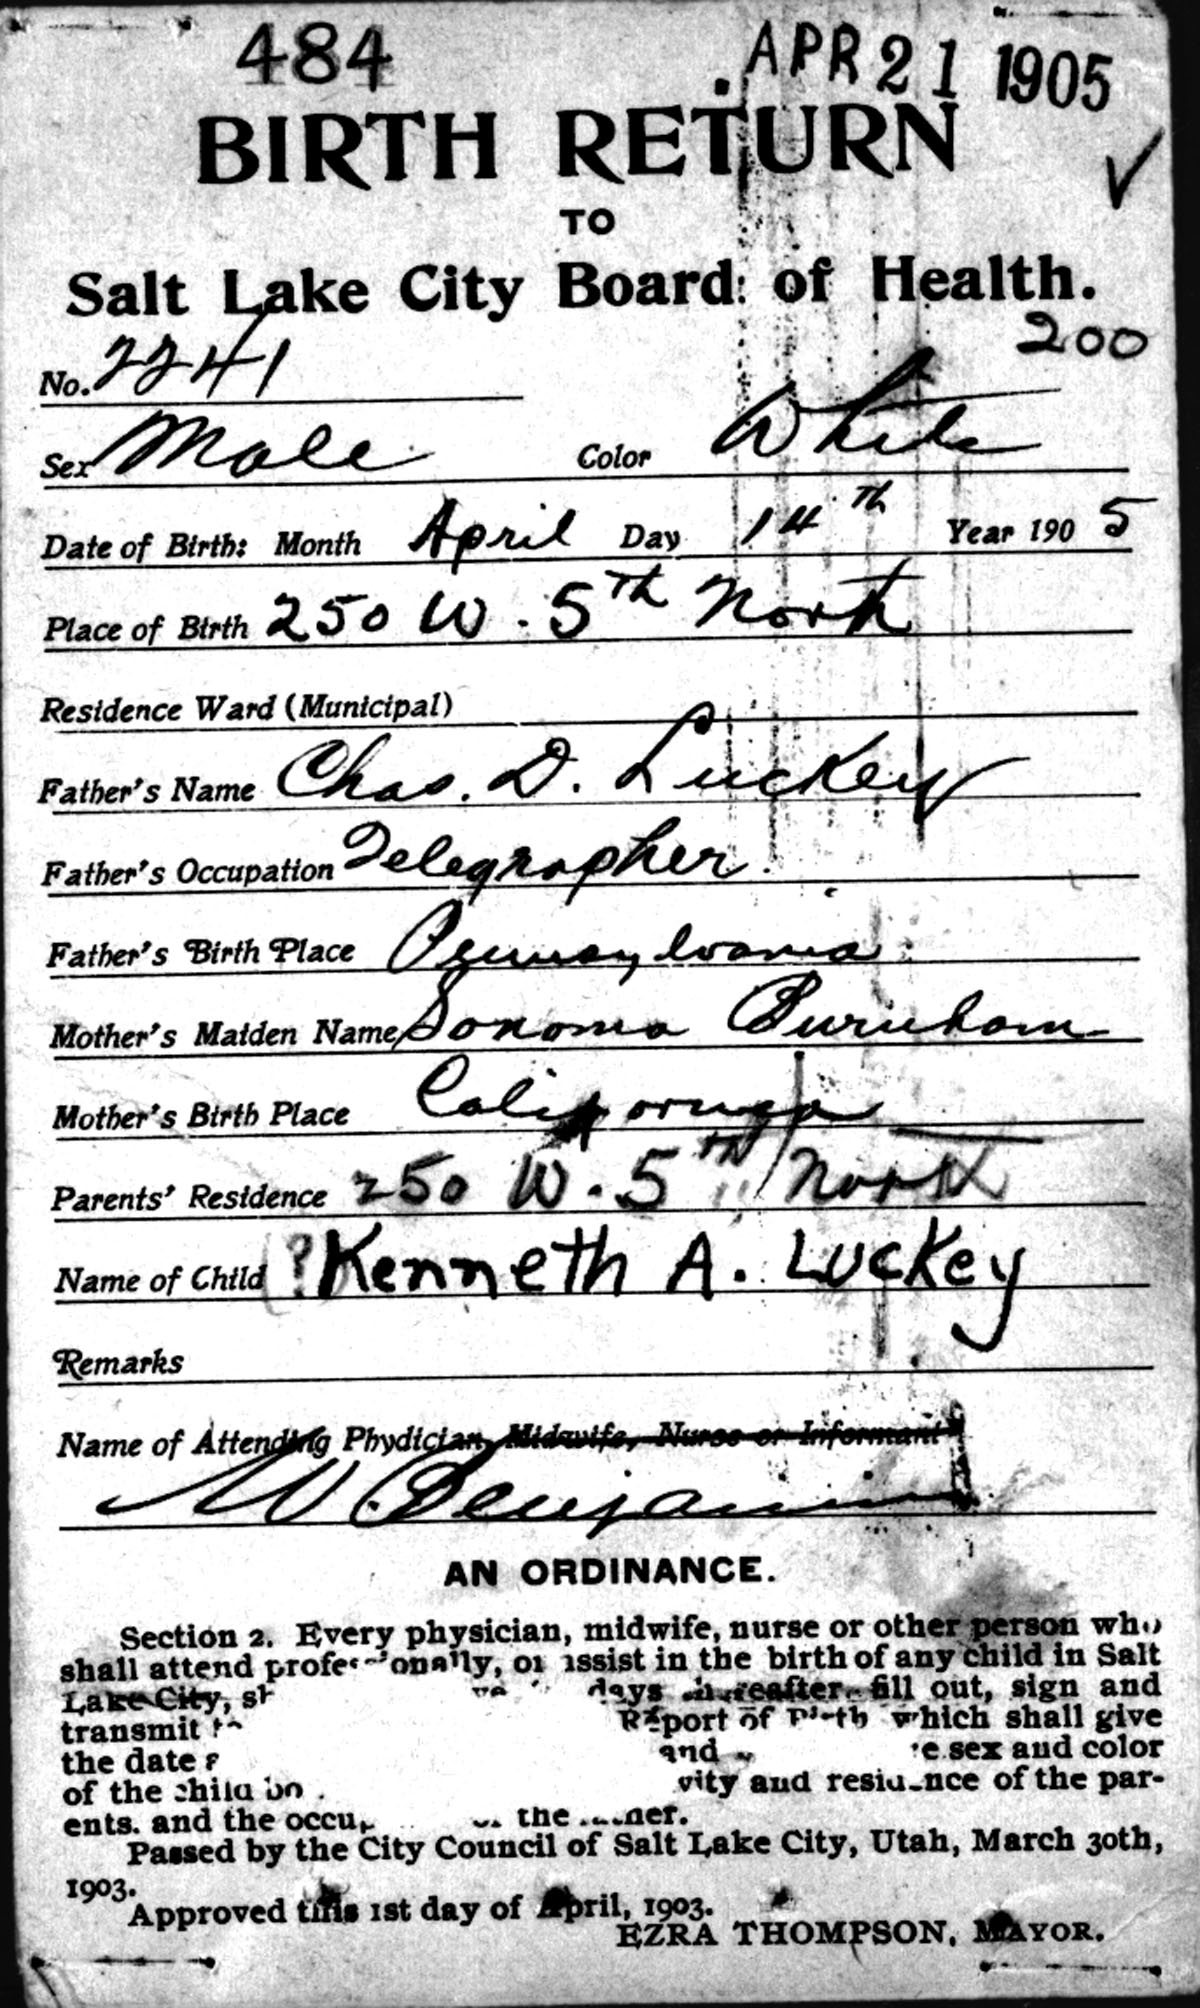 484
APR 21 1905
BIRTH RETURN
TO
Salt Lake City Board of Health.
200
No. 2241
Sex Male Color White
Date of Birth: Month April Day 14th Year 1905
Place of Birth 250 W. 5th North
Residence Ward (Municipal)
Father's Name Chas. D. Luckey
Father's Occupation Telegrapher
Father's Birth Place Pennsylvania
Mother's Maiden Name Sonoma Burnham
Mother's Birth Place California
Parents' Residence 250 W. 5th North
Name of Child ? Kenneth A. Luckey
Remarks
Name of Attending Phydician, Midwife, Nurse or Informant
W. Benjamin
AN ORDINANCE.
Section 2. Every physician, midwife, nurse or other person who
shall attend professionally, or assist in the birth of any child in Salt
Lake City, days thereafter fill out, sign and
transmit Report of Birth which shall give
the date and sex and color
of the child and residence of the par-
ents. and the the
Passed by the City Council of Salt Lake City, Utah, March 30th,
1903.
Approved this 1st day of April, 1903.
EZRA THOMPSON, MAYOR.